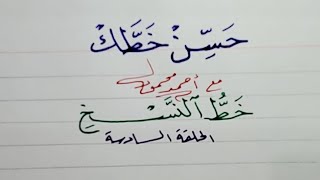 حَسِّنْ خَطَّكَ
مع أحمد محمود
خَطُّ النَّسْخِ
الحلقة السادسة